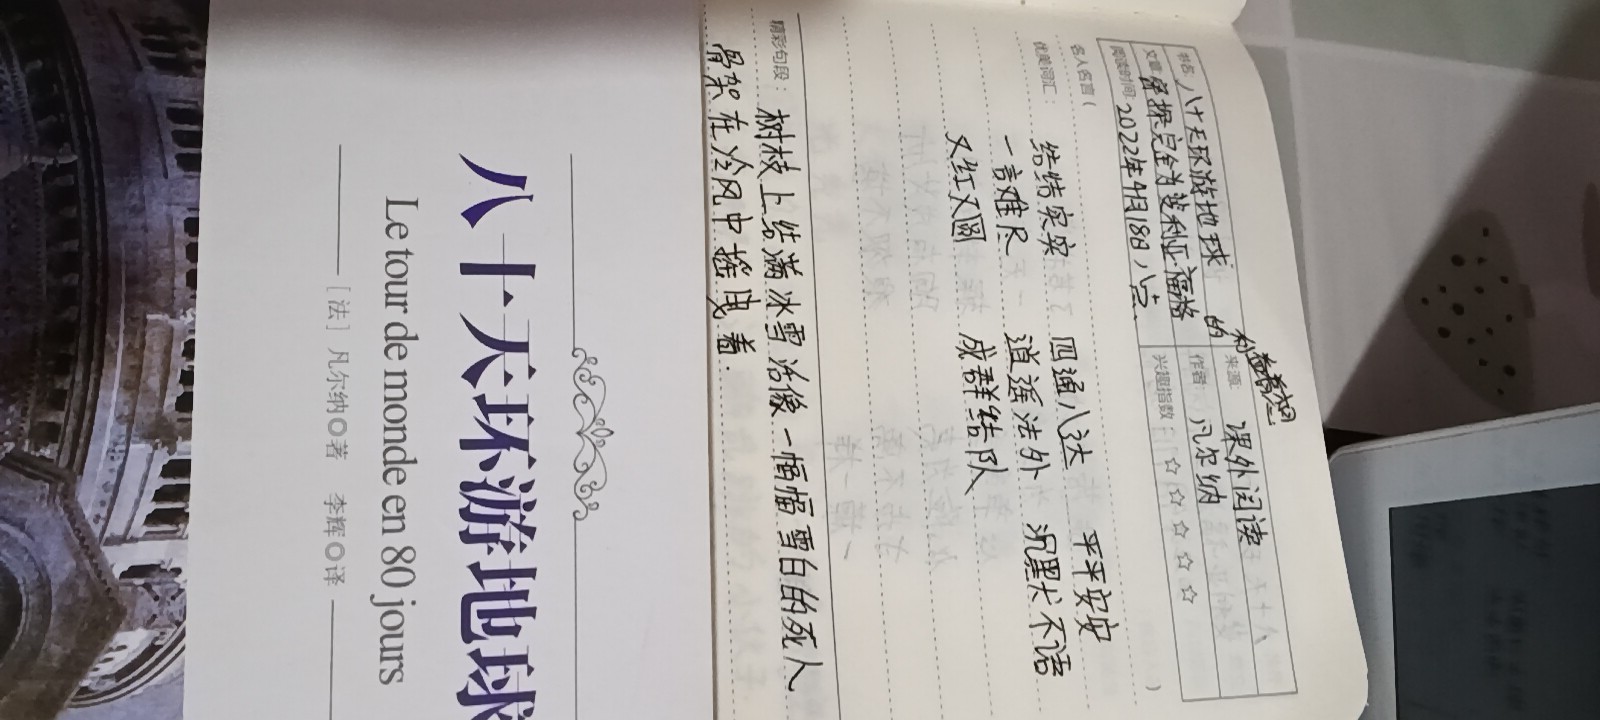 书名: 八十天环游地球
来源: 课外阅读
文章: 侦探完全为斐利亚福格的利益着想
作者: 凡尔纳
阅读时间: 2022年4月18日 八点
兴趣指数: ☆☆☆☆☆
名人名言( )
优美词汇: 结结实实 四通八达 平平安安
一言难尽 逍遥法外 沉默不语
又红又圆 成群结队
精彩句段: 树枝上结满冰雪洽像一幅幅雪白的死人
骨架在冷风中摇曳着.
八十天环游地球
Le tour de monde en 80 jours
[法] 凡尔纳◎著 李辉◎译